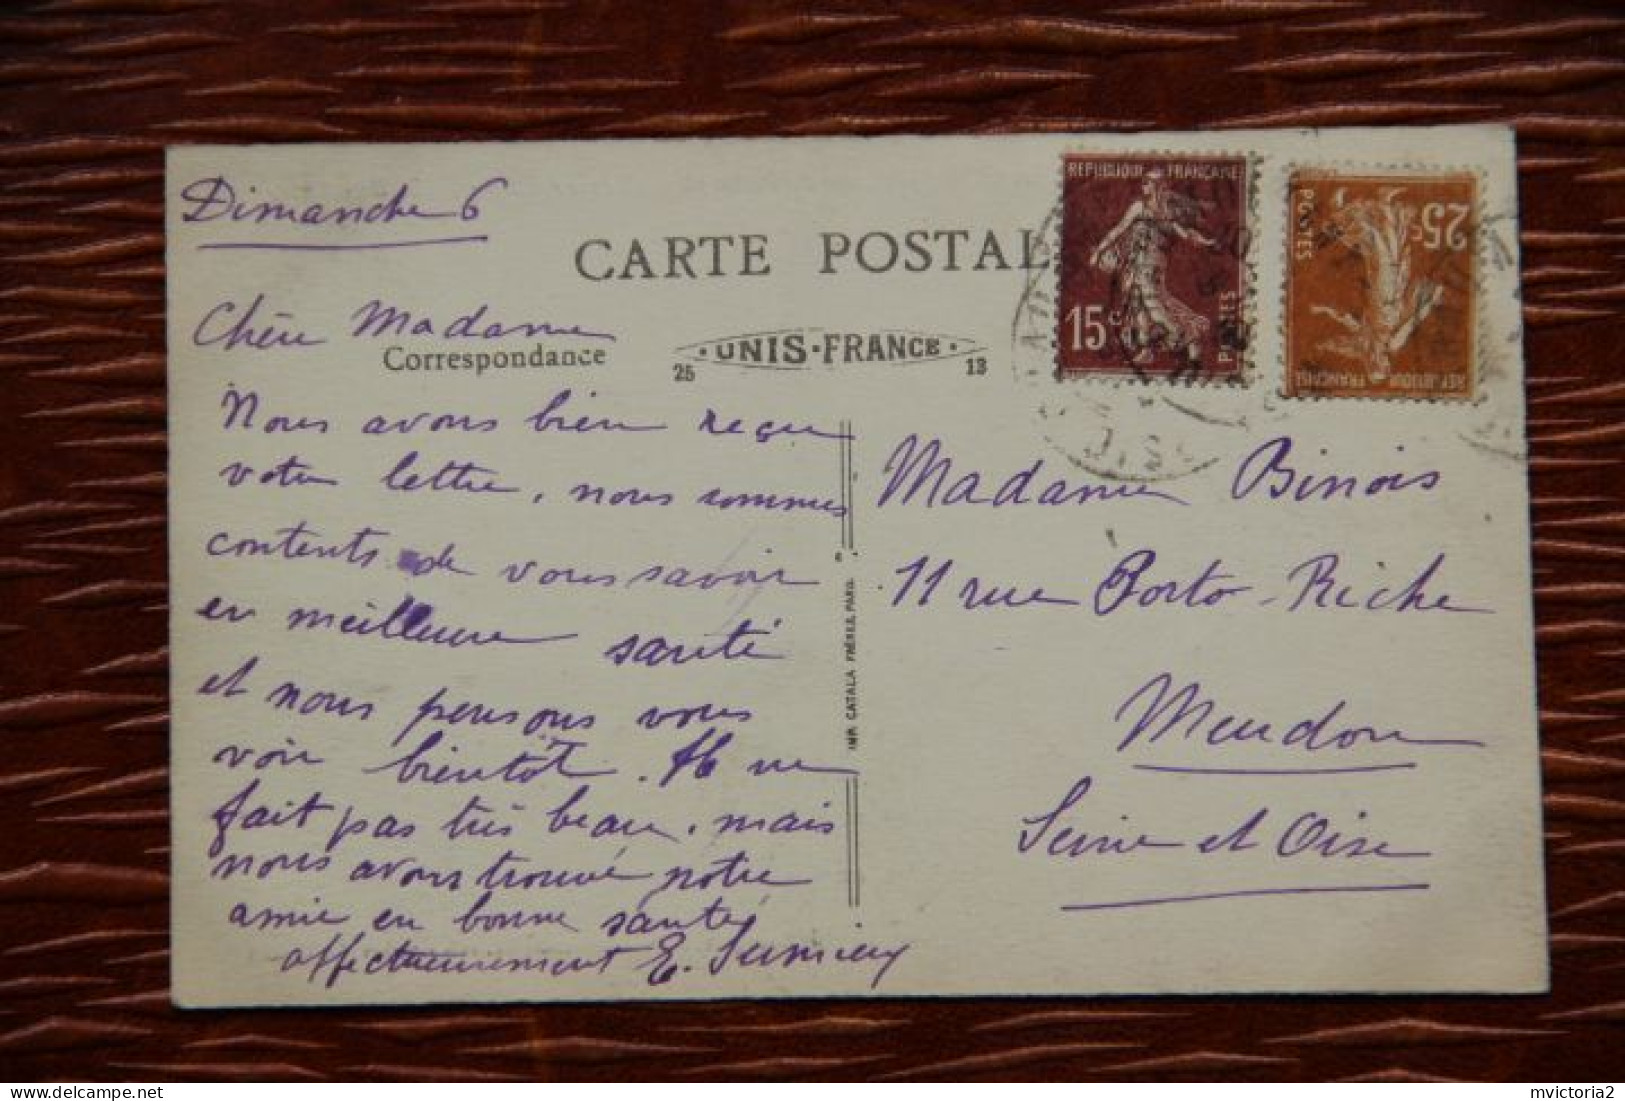 Dimanche 6
CARTE POSTAL
Chère Madame
Correspondance
UNIS-FRANCE
25 13
Nous avons bien reçu
votre lettre, nous sommes
contents de vous savoir
en meilleure santé
et nous pensons vous
voir bientôt. Il ne
fait pas très beau, mais
nous avons trouvé notre
amie en bonne santé,
affectueusement E.
IMP. CATALA FRÈRES, PARIS
REPUBLIQUE FRANÇAISE
15c
POSTES
REPUBLIQUE FRANÇAISE
25c
POSTES
Madame Binois
11 rue Porto-Riche
Meudon
Seine et Oise
mvictoria2